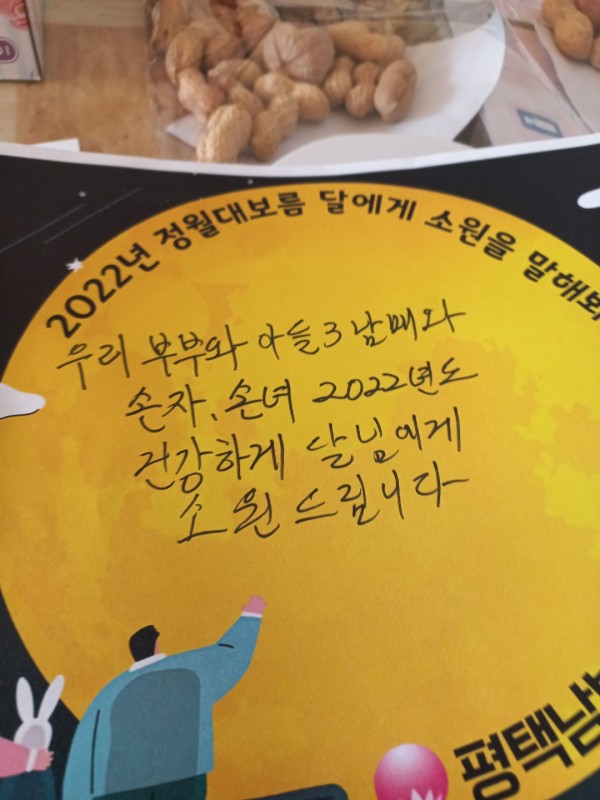 2022년 정월대보름 달에게 소원을 말해봐
우리 부부와 아들3남매와
손자, 손녀 2022년도
건강하게 달님에게
소원 드립니다
평택남